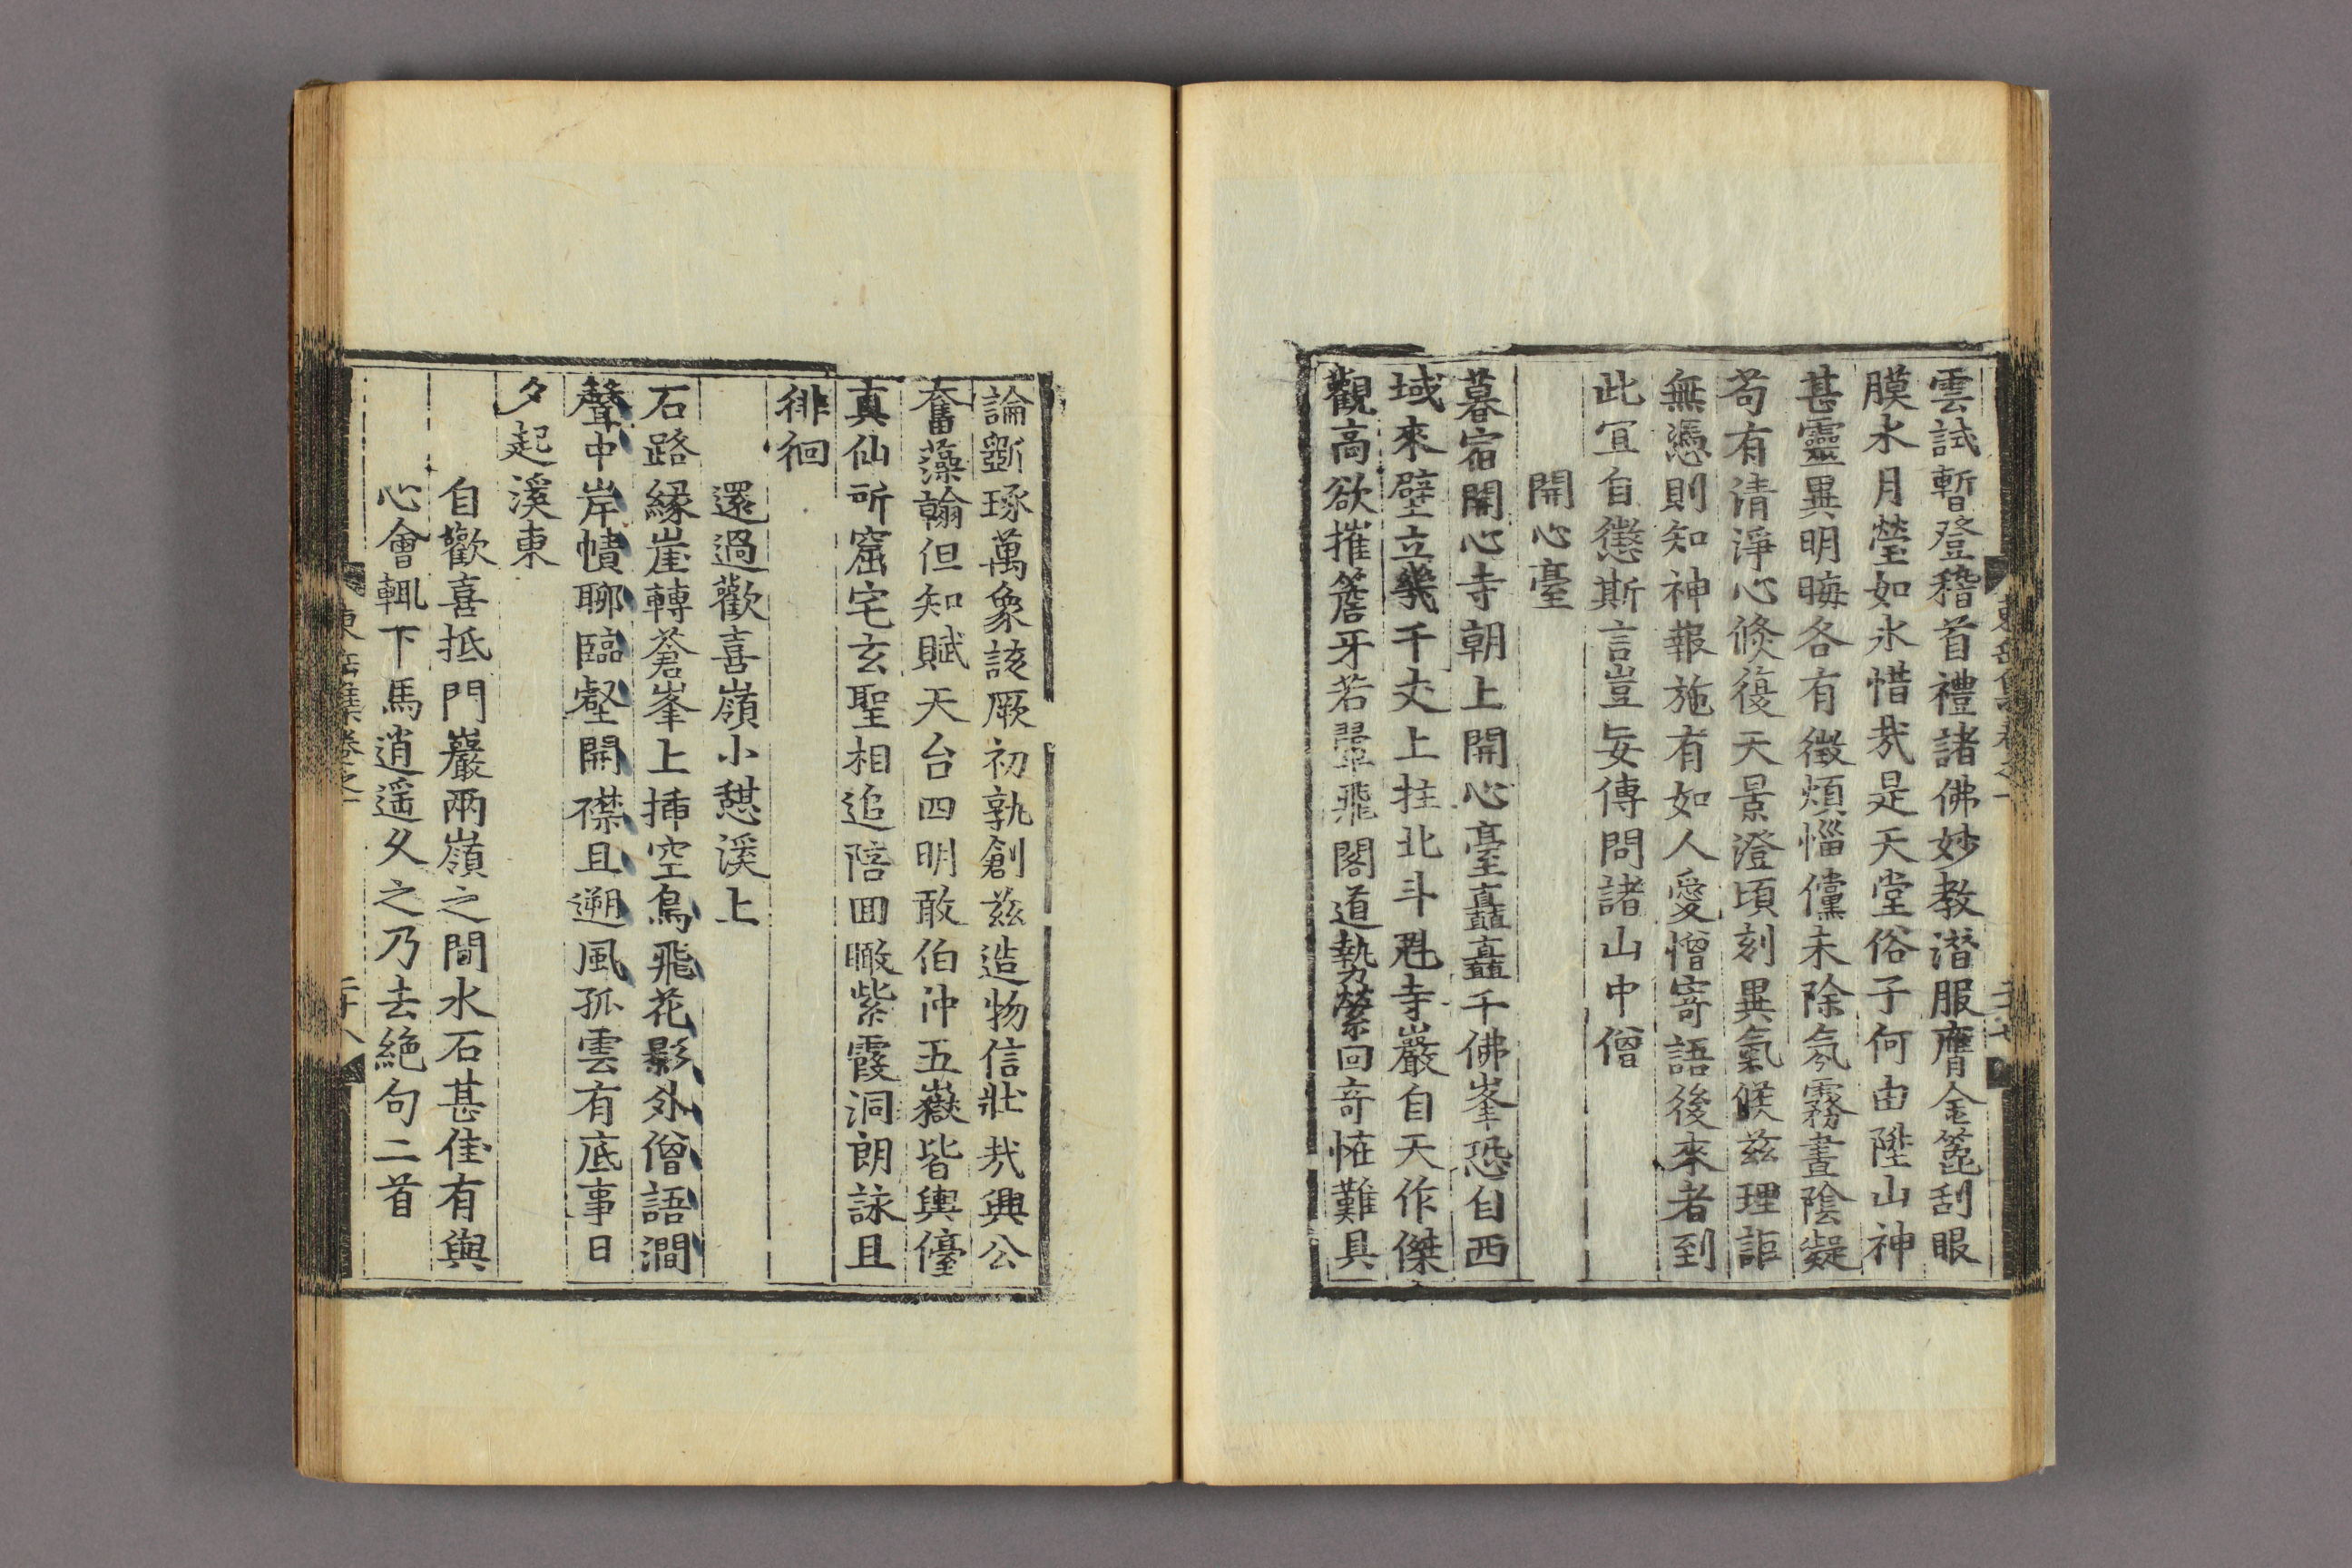 雲試暫登稽首禮諸佛妙教潛服膺金篦刮眼
膜水月瑩如氷惜㢤是天堂俗子何由陞山神
甚靈異明晦各有徵煩惱儻未除氛霧晝陰凝
苟有清淨心倐復天景澄頃刻異氣候茲理詎
無憑則知神報施有如人愛憎寄語後來者到
此宜自懲斯言豈妄傳問諸山中僧
開心臺
暮宿開心寺朝上開心臺矗矗千佛峯恐自西
域來壁立幾千丈上拄北斗魁寺巖自天作傑
觀高欲摧簷牙若翬飛閣道勢縈回奇恠難具
論斲琢萬象該厥初孰創茲造物信壯㢤興公
奮藻翰但知賦天台四明敢伯沖五嶽皆輿儓
真仙所窟宅玄聖相追陪回瞰紫霞洞朗詠且
徘徊
還過歡喜嶺小憇溪上
石路緣崖轉蒼峯上揷空鳥飛花影外僧語澗
聲中岸幘聊臨壑開襟且遡風孤雲有底事日
夕起溪東
自歡喜抵門巖兩嶺之間水石甚佳有與
心會輒下馬逍遥久之乃去絶句二首
東岳集卷之一
二十八